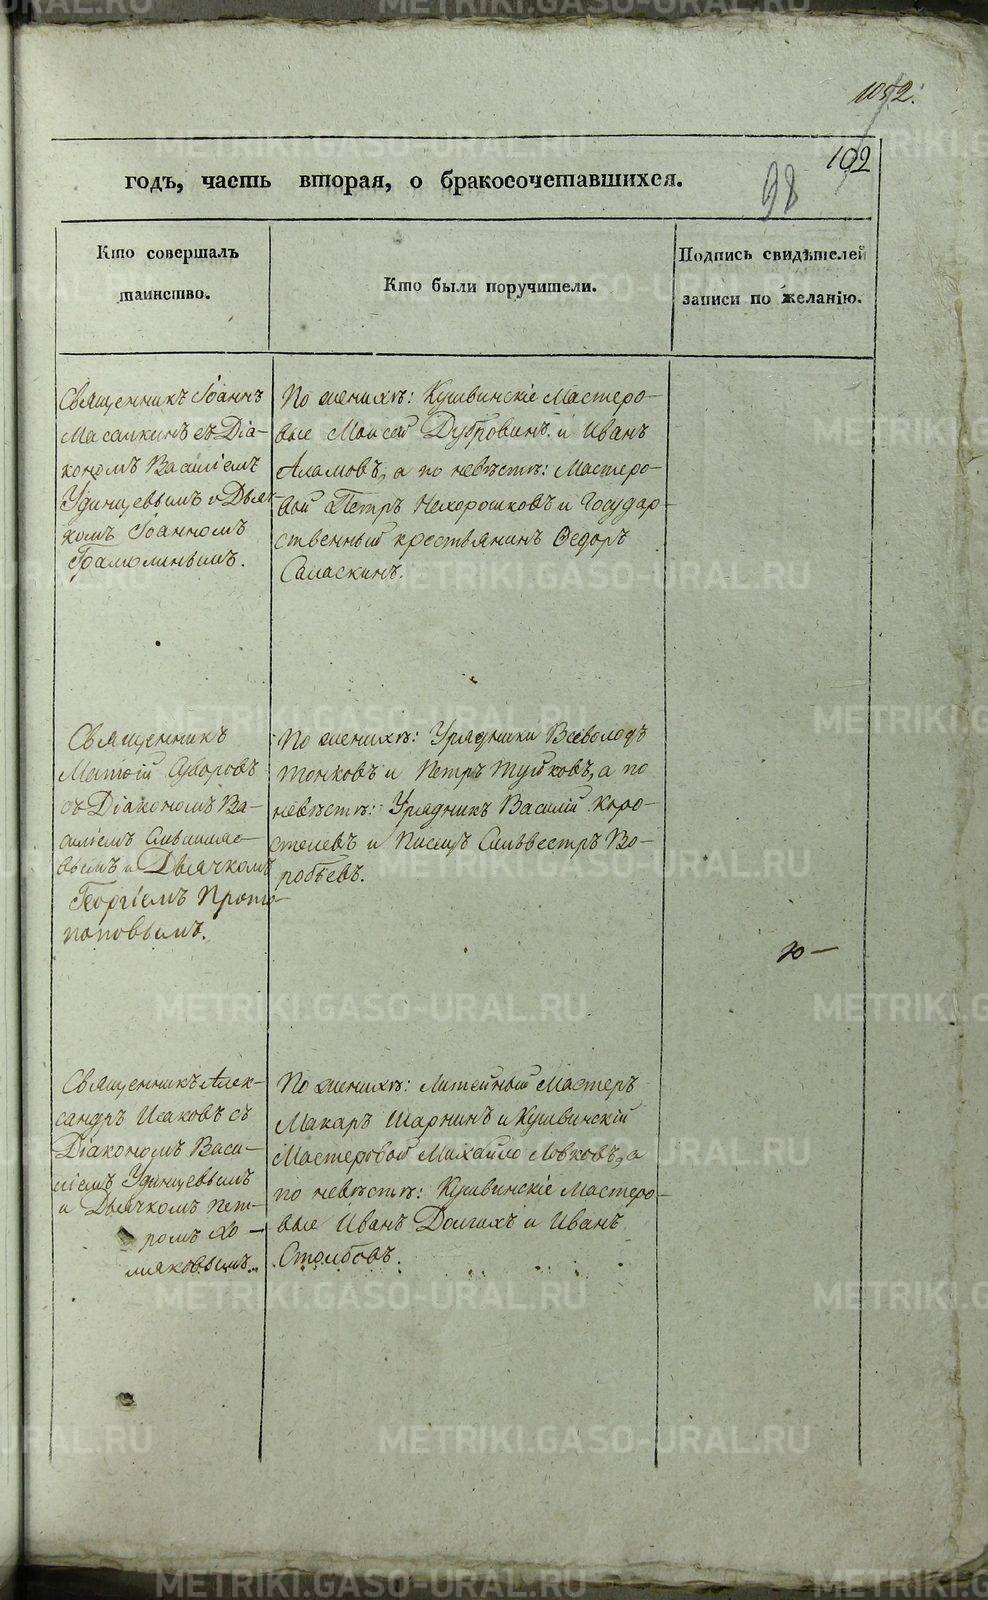 102
98
годъ, часть вторая, о бракосочетавшихся.
Кто совершалъ
таинство.
Кто были поручители.
Подпись свидѣтелей
записи по желанію.
Священникъ Іоаннъ
Масалкинъ съ Діа-
кономъ Василіемъ
Удинцевымъ и Дьяч-
комъ Іоанномъ
По женихѣ: Кушвинскіе Мастеро-
вые Моисей Дубровинъ и Иванъ
а по невѣстѣ: Мастеро-
вой Петръ Нехорошковъ и Государ-
ственный крестьянинъ Ѳедоръ
Саласкинъ.
Священникъ
Матѳій Суворовъ
съ Діакономъ Ва-
силіемъ
и Дьячкомъ
Георгіемъ Прото-
поповымъ.
По женихѣ: Урядники Всеволодъ
Тонковъ и Петръ а по
невѣстѣ: Урядникъ Василій Коро-
стелевъ и Писецъ Сильвестръ Во-
робьевъ.
Священникъ Алек-
сандръ Исаковъ съ
Діакономъ Васи-
ліемъ Удинцевымъ
и Дьячкомъ Пет-
ромъ Хо-
мяковымъ.
По женихѣ: Литейный Мастеръ
Макаръ Шарнинъ и Кушвинскій
Мастеровой Михайло Ловковъ, а
по невѣстѣ: Кушвинскіе Мастеро-
вые Иванъ Долгихъ и Иванъ
Столбовъ.
METRIKI.GASO-URAL.RU